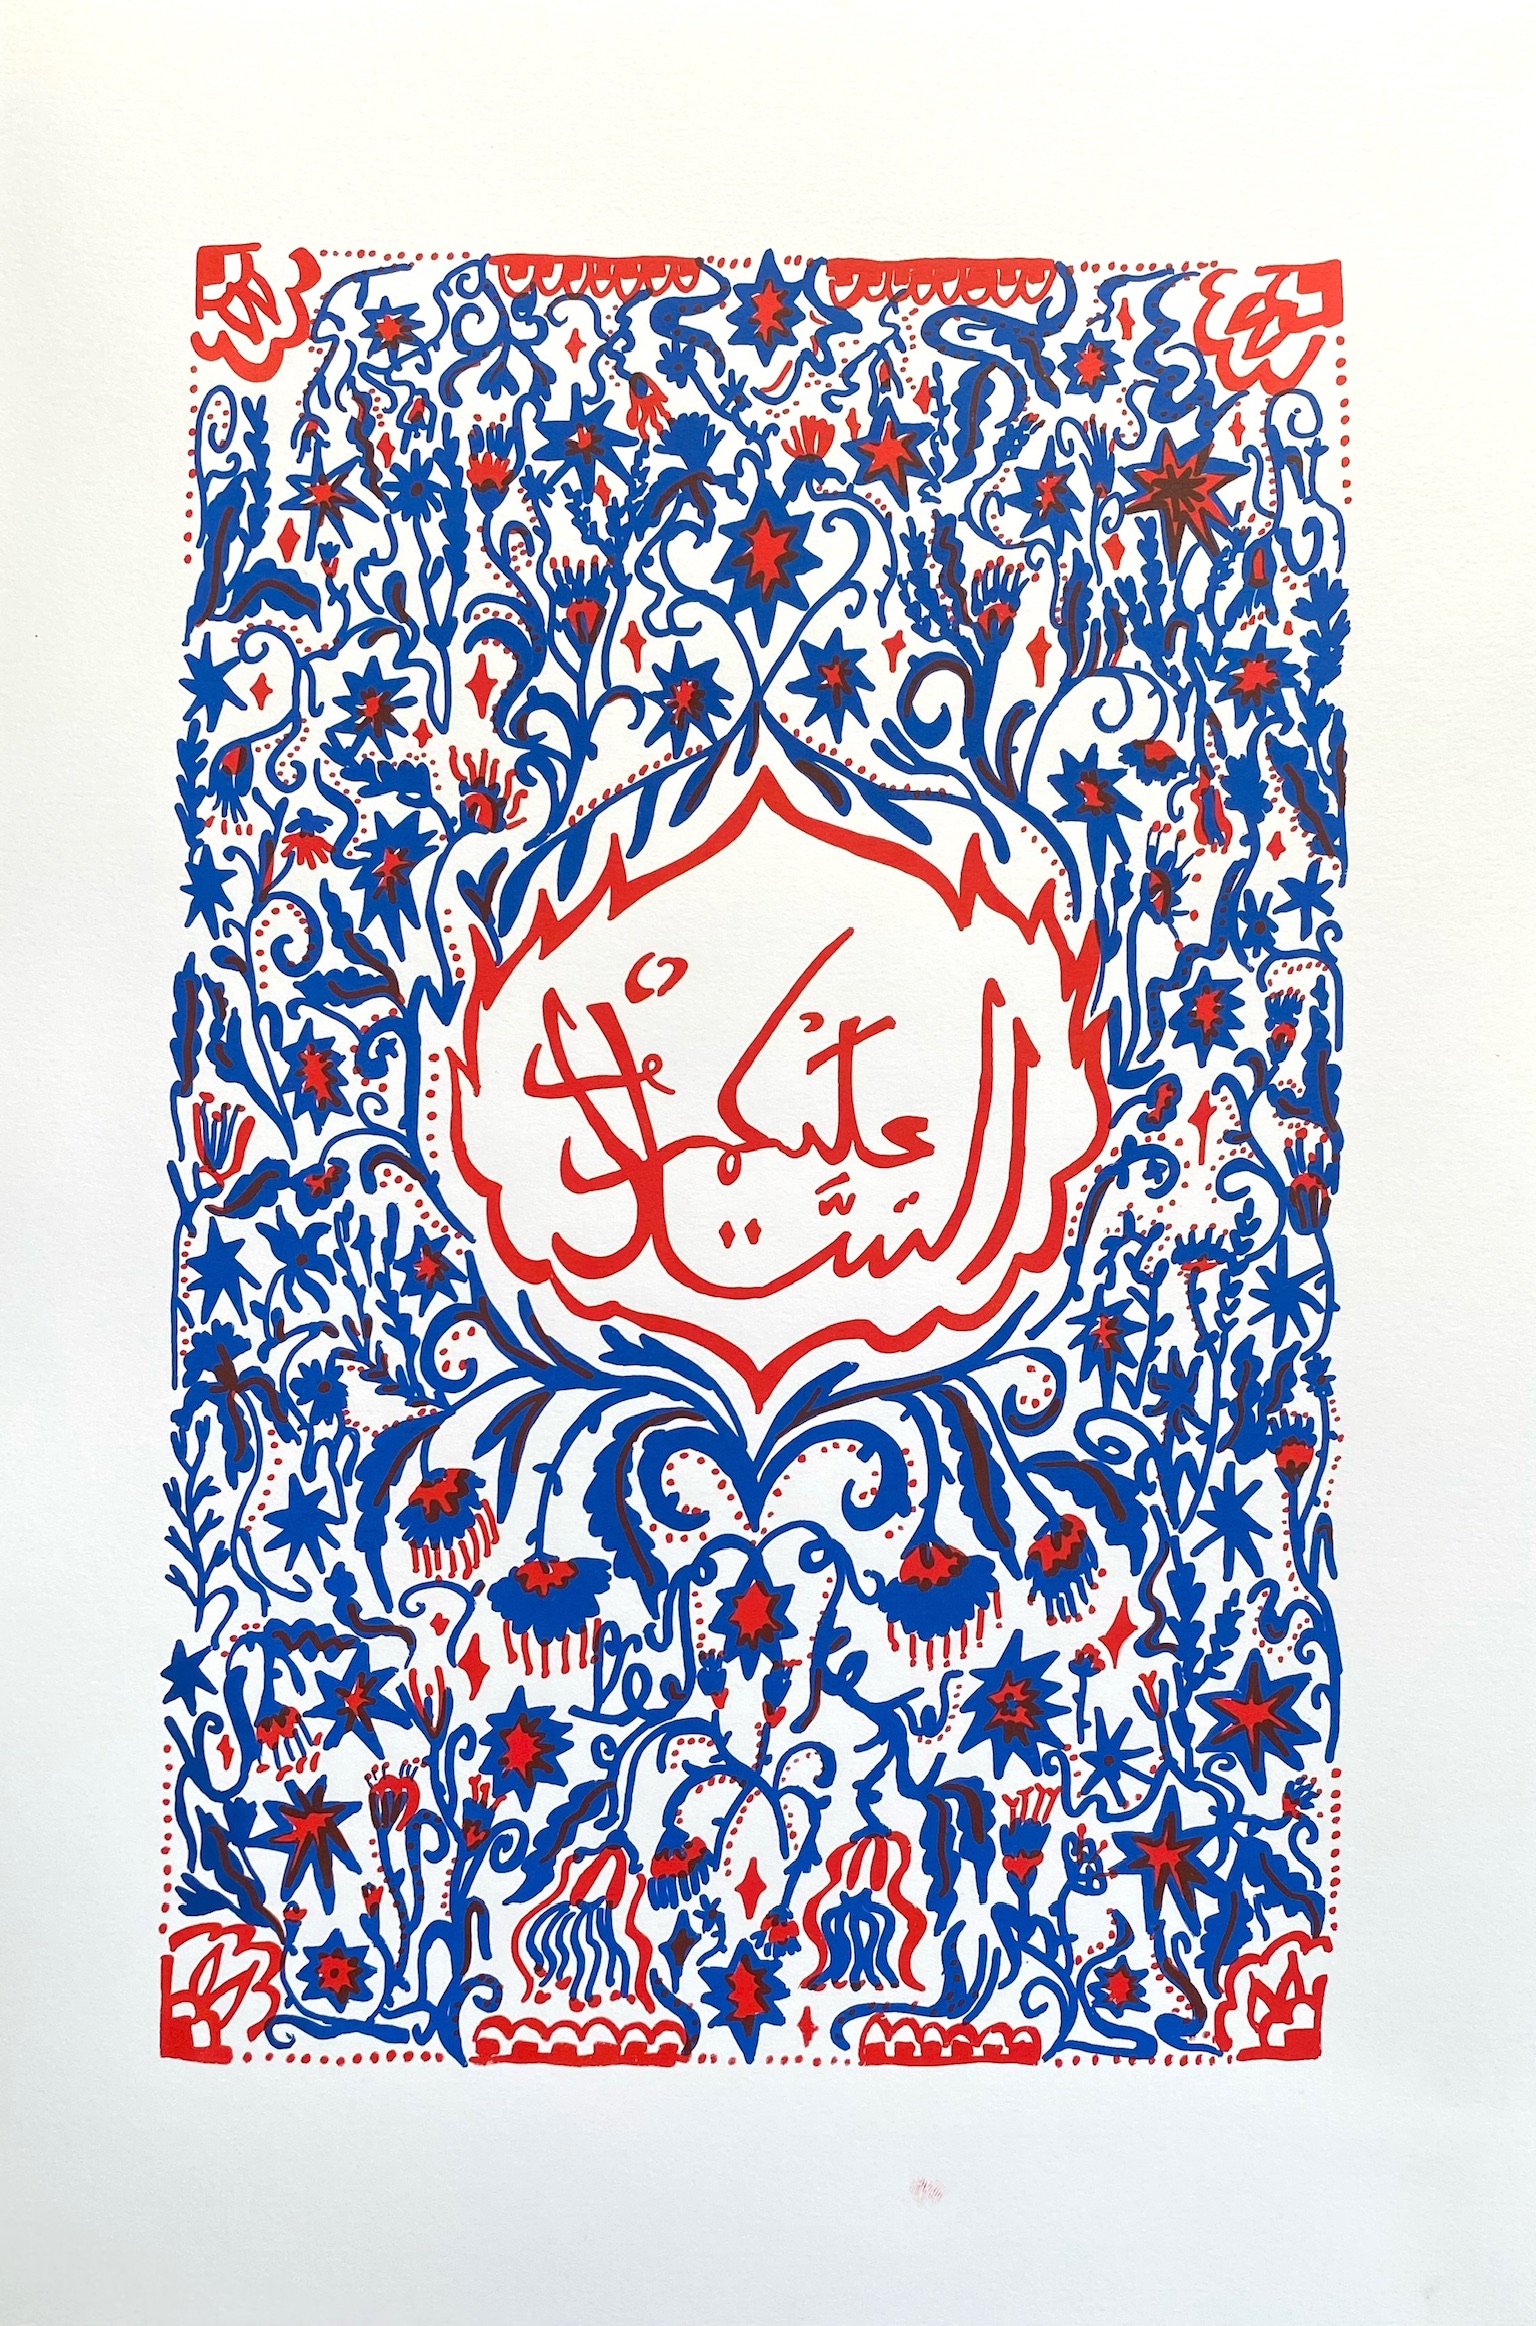 السّلام عليكم